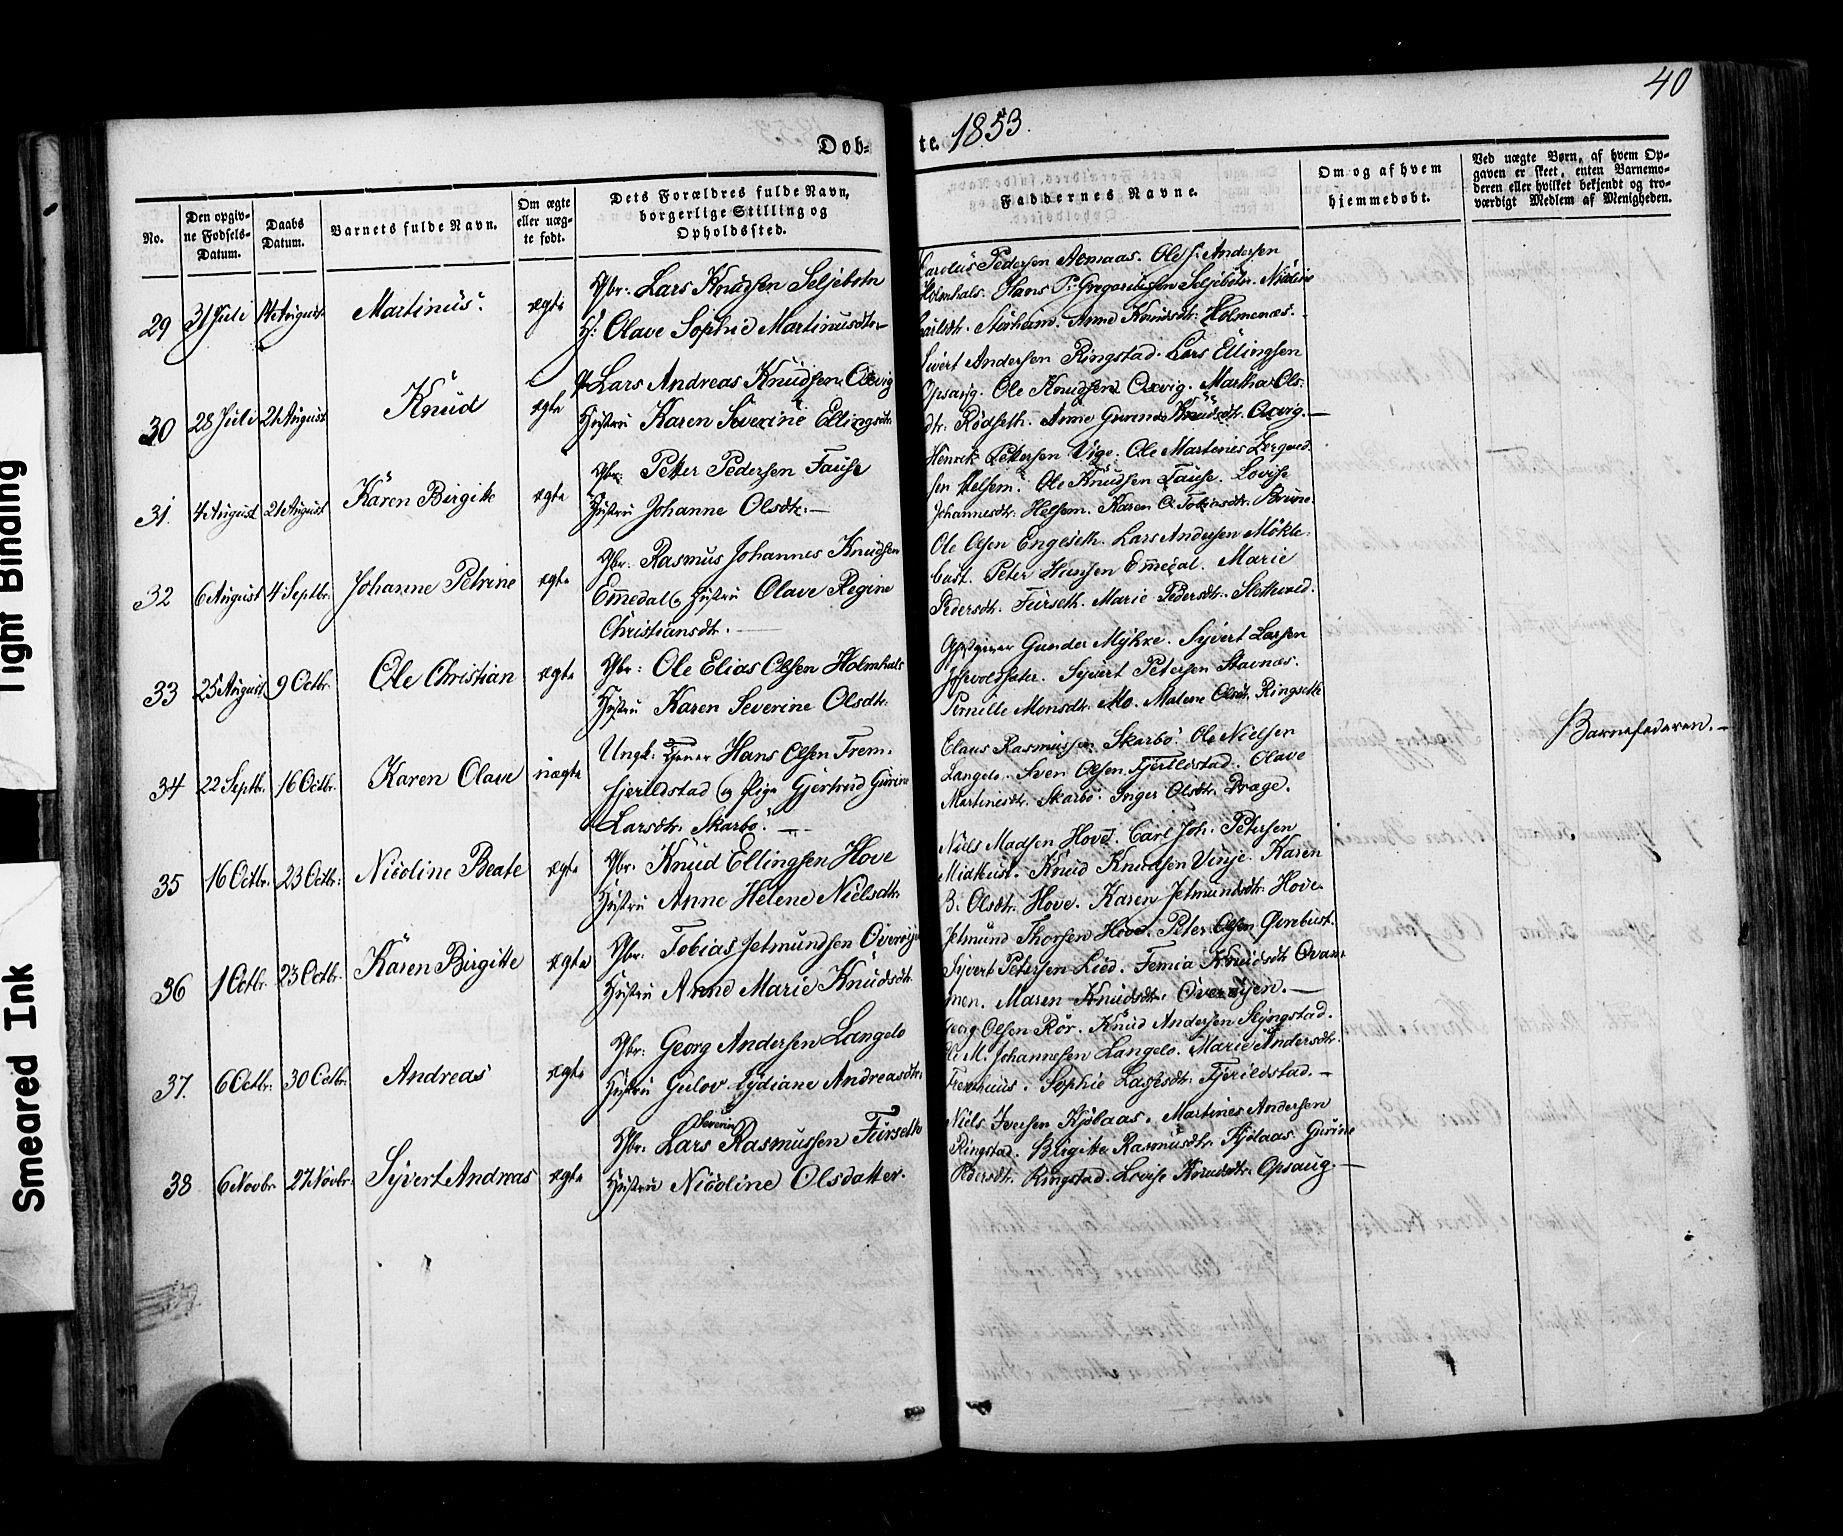 40
Døb-
te. 1853.
No.
Den opgiv-
ne Fødsels-
Datum.
Daabs
Datum.
Barnets fulde Navn.
Om ægte
eller uæg-
te født.
Dets Forældres fulde Navn,
borgerlige Stilling og
Opholdssted.
Faddernes Navne.
Om og af hvem
hjemmedøbt.
Ved uægte Børn, af hvem Op-
gaven er skeet, enten Barnemo-
deren eller hvilket bekjendt og tro-
værdigt Medlem af Menigheden.
29 31 Juli 14 August Martinus. ægte
Gbr: Lars Knudsen Seljebotn
H: Olave Sophie Martinusdtr.
Carolus Pedersen Aamaas. Ole J. Andersen
Holmhals. Hans P. Gregoriussen Seljebotn. Nicoline
Storheim. Anne Knudsdtr. Holmenæs.
30 28 Juli 21 August Knud ægte
Lars Andreas Knudsen Oxvig
Hustru Karen Severine Ellingsdtr.
Sivert Andersen Ringstad. Lars Ellingsen
Opsaug. Ole Knudsen Oxvig. Martha Ols-
dtr. Rödseth. Anne Gurine Knudsdtr. Oxvig.
31. 4 August 21 August Karen Birgitte ægte
Gbr: Petter Pedersen Tause
Hustru Johanne Olsdtr.
Henrik Pettersen Vige. Ole Martinus
sen Helsem. Ole Knudsen Tause. Lovise
Johannesdtr. Helsem. Karen O. Tobiasdtr. Brune.
32 6 August 4 Septbr. Johanne Petrine ægte
Gbr. Rasmus Johannes Knudsen
Emedal og Hustru Olave Regine
Christiansdtr.
Ole Olsen Engeseth. Lars Andersen Mökle-
bust. Peter Hansen Emedal. Marie
Pedersdtr. Furseth. Marie Pedersdtr. Slettevold.
33 25 August 9 Octbr. Ole Christian ægte
Gbr: Ole Elias Olsen Holmhals
Hustru Karen Severine Olsdtr.
Gjestgiver Gunder Myhre. Syvert Larsen
Syvert Petersen Stavnæs.
Pernille Monsdtr. Mo. Malene Olsdtr. Ringseth
34 22 Septbr. 16 Octbr. Karen Olave uægte
Ungk: Tjener Hans Olsen Frem-
fjerildstad og Pige Gjertrud Gurine
Larsdtr. Skarbö.
Claus Rasmussen Skarbö. Ole Nielsen
Langelo. Sven Olsen Fjerildstad. Olave
Martinusdtr. Skarbö. Inger Olsdtr. Drage.
Barnefaderen.
35 16 Octbr. 23 Octbr. Nicoline Beate ægte
Gbr. Knud Ellingsen Hove
Hustru Anne Helene Nielsdtr.
Niels Madsen Hove. Carl Joh. Petersen
Midtbust. Knud Knudsen Vinje. Karen
B. Olsdtr. Hove. Karen Jetmundsdtr. Hove.
36 1 Octbr. 23 Octbr. Karen Birgitte ægte
Gbr. Tobias Jetmundsen Overöje
Hustru Anne Marie Knudsdtr.
Jetmund Thorsen Hove. Peter Olsen Ovrebust.
Syvert Petersen Lied. Femia Knudsdtr. Ovam-
men. Maren Knudsdtr. Overöjen.
37. 6 Octbr. 30 Octbr. Andreas ægte
Gbr: Georg Andersen Langelo
Hustru Gulov Lydiane Andreasdtr.
Georg Olsen Rör. Knud Andersen Slyngstad.
Ole M. Johannesen Langelo. Marie Andersdtr.
Sophie Larsdtr. Fjerildstad.
38 6 Novbr. 27 Novbr. Syvert Andreas ægte
Severin
Gbr: Lars Rasmussen Furseth
Hustru Nicoline Olsdatter.
Niels Iversen Kjölaas. Martinus Andersen
Ringstad. Birgitte Rasmusdtr. Kjölaas. Gurine
Pedersdtr. Ringstad. Lovise Knudsdtr. Opsaug.
Tight Binding
Smeared Ink